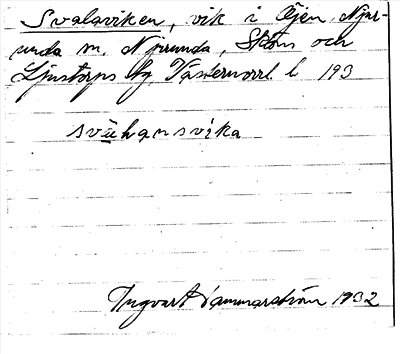 Svalaviken, vik i Öjen, Njur-
unda sn. Njurunda, Sköns och
Ljustorps tg Västernorrl. l 193
svühansvika
Ingvart Hammarström 1932